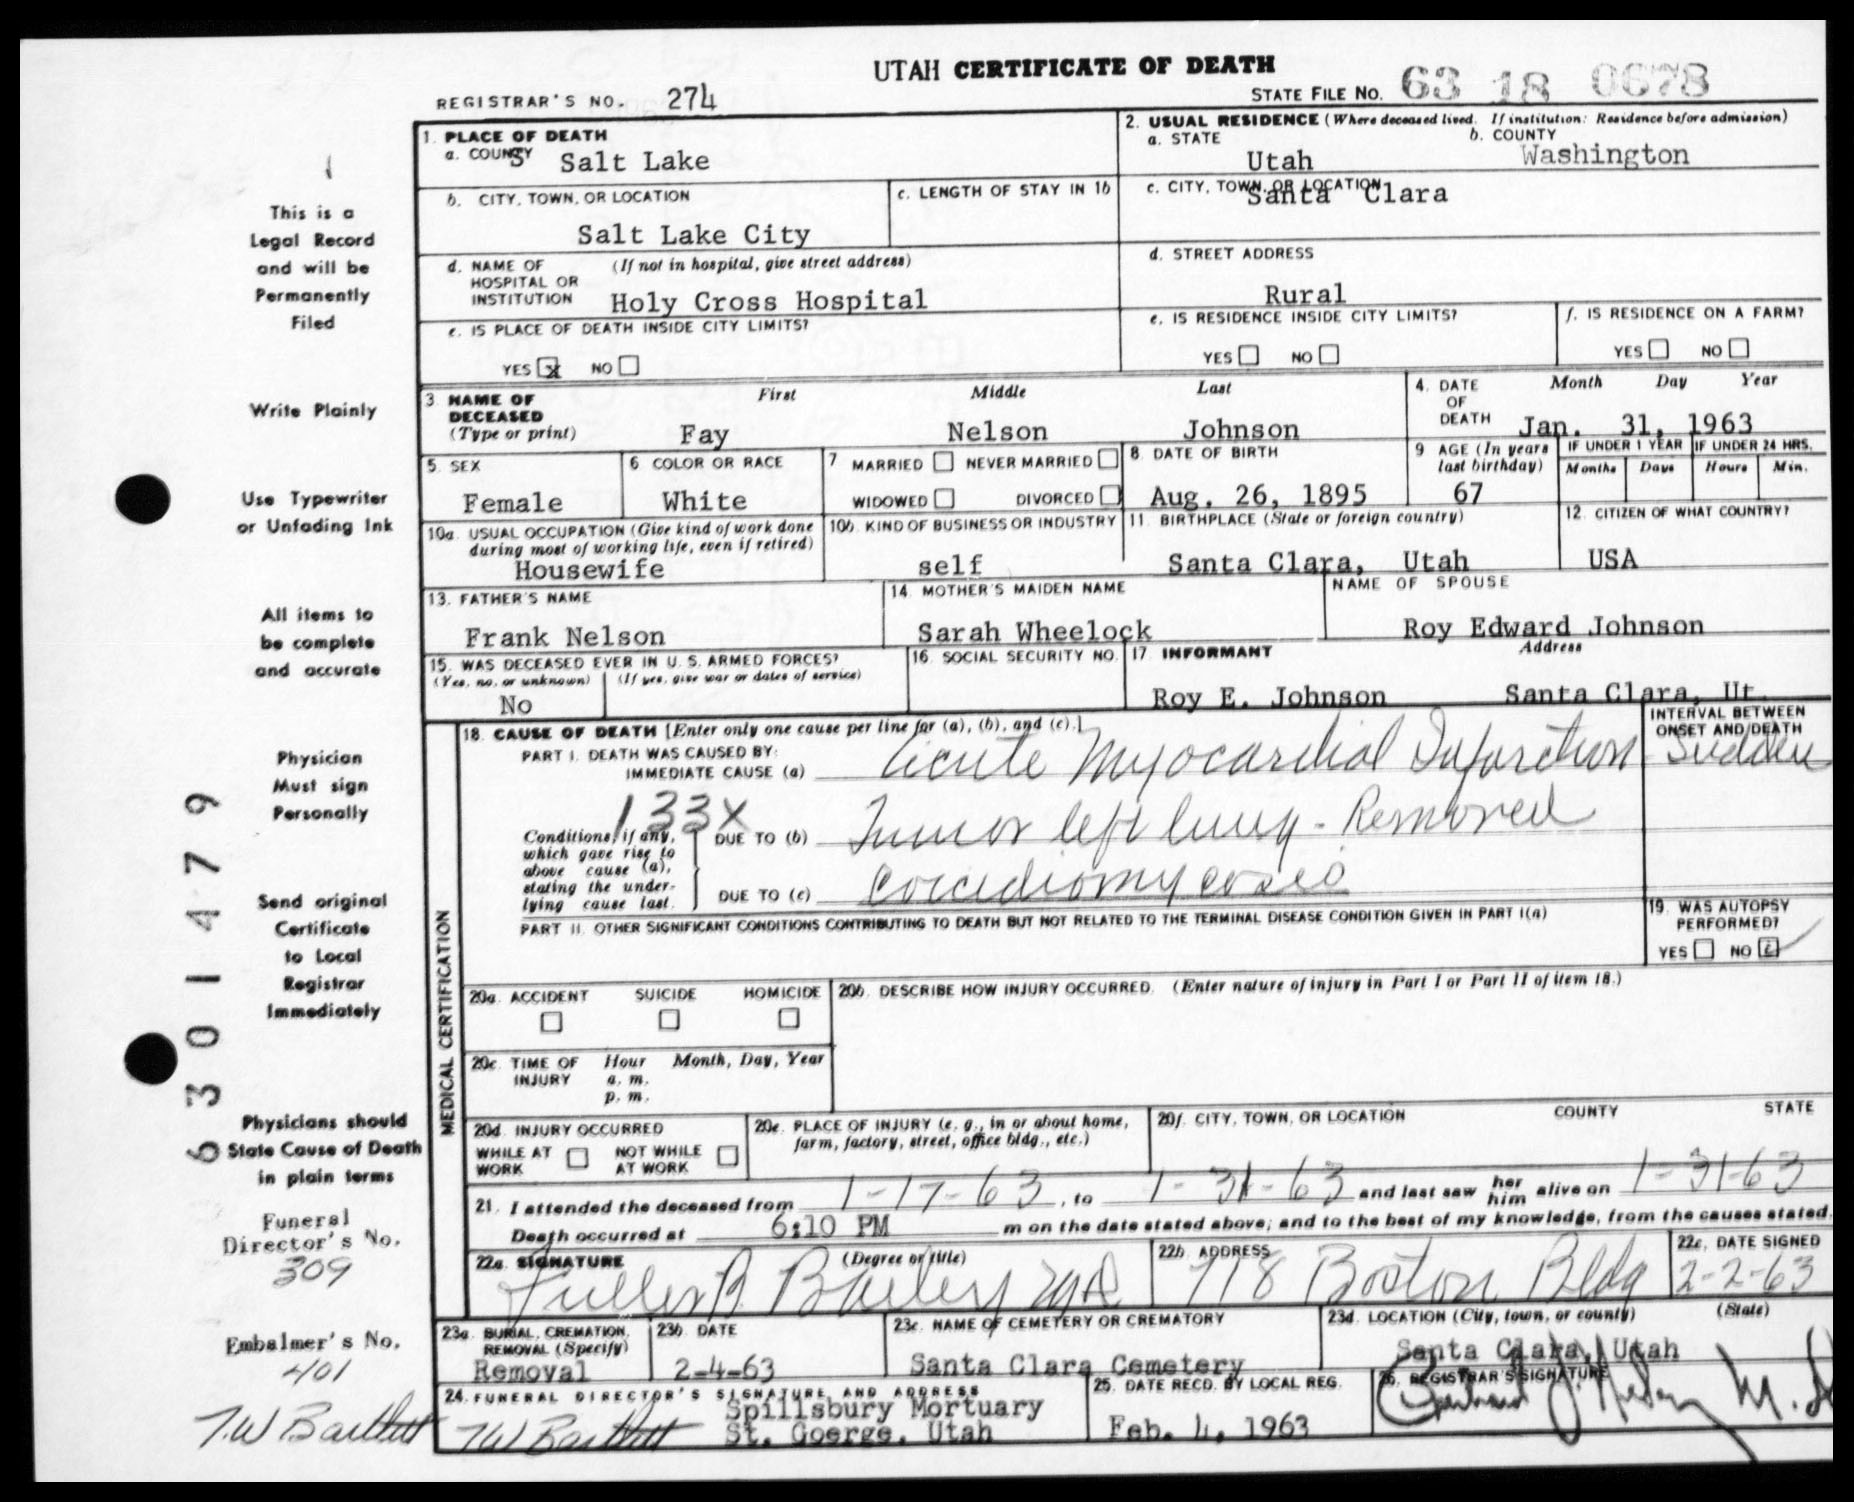 UTAH CERTIFICATE OF DEATH
REGISTRAR'S NO. 274
STATE FILE NO. 63 18 0678
1. PLACE OF DEATH
a. COUNTY S Salt Lake
2. USUAL RESIDENCE (Where deceased lived. If institution: Residence before admission)
a. STATE Utah
b. COUNTY Washington
b. CITY, TOWN, OR LOCATION Salt Lake City
c. LENGTH OF STAY IN 1b
c. CITY, TOWN, OR LOCATION Santa Clara
d. NAME OF HOSPITAL OR INSTITUTION (If not in hospital, give street address) Holy Cross Hospital
d. STREET ADDRESS Rural
e. IS PLACE OF DEATH INSIDE CITY LIMITS?
YES x NO
e. IS RESIDENCE INSIDE CITY LIMITS?
YES NO
f. IS RESIDENCE ON A FARM?
YES NO
3. NAME OF DECEASED (Type or print)
First Middle Last
Fay Nelson Johnson
4. DATE OF DEATH Month Day Year
Jan. 31, 1963
5. SEX
Female
6 COLOR OR RACE
White
7 MARRIED NEVER MARRIED
WIDOWED DIVORCED
8. DATE OF BIRTH
Aug. 26, 1895
9 AGE (In years last birthday)
67
IF UNDER 1 YEAR IF UNDER 24 HRS.
Months Days Hours Min.
10a. USUAL OCCUPATION (Give kind of work done during most of working life, even if retired)
Housewife
10b. KIND OF BUSINESS OR INDUSTRY
self
11. BIRTHPLACE (State or foreign country)
Santa Clara, Utah
12. CITIZEN OF WHAT COUNTRY?
USA
13. FATHER'S NAME
Frank Nelson
14. MOTHER'S MAIDEN NAME
Sarah Wheelock
NAME OF SPOUSE
Roy Edward Johnson
15. WAS DECEASED EVER IN U. S. ARMED FORCES?
(Yes, no, or unknown) (If yes, give war or dates of service)
No
16. SOCIAL SECURITY NO.
17. INFORMANT Address
Roy E. Johnson Santa Clara, Ut.
18. CAUSE OF DEATH [Enter only one cause per line for (a), (b), and (c).]
PART I. DEATH WAS CAUSED BY:
IMMEDIATE CAUSE (a) Acute Myocardial Infarction
INTERVAL BETWEEN ONSET AND DEATH
Sudden
133X
Conditions, if any, which gave rise to above cause (a), stating the underlying cause last.
DUE TO (b) Tumor left lung - Removed
DUE TO (c) Coccidiomycosis
PART II. OTHER SIGNIFICANT CONDITIONS CONTRIBUTING TO DEATH BUT NOT RELATED TO THE TERMINAL DISEASE CONDITION GIVEN IN PART I(a)
19. WAS AUTOPSY PERFORMED?
YES NO
MEDICAL CERTIFICATION
20a. ACCIDENT SUICIDE HOMICIDE
20b. DESCRIBE HOW INJURY OCCURRED. (Enter nature of injury in Part I or Part II of item 18.)
20c. TIME OF INJURY Hour Month, Day, Year
a. m.
p. m.
20d. INJURY OCCURRED
WHILE AT WORK NOT WHILE AT WORK
20e. PLACE OF INJURY (e. g., in or about home, farm, factory, street, office bldg., etc.)
20f. CITY, TOWN, OR LOCATION COUNTY STATE
21. I attended the deceased from 1-17-63, to 1-31-63 and last saw her him alive on 1-31-63
Death occurred at 6:10 PM m on the date stated above; and to the best of my knowledge, from the causes stated.
22a. SIGNATURE (Degree or title)
Fuller B. Bailey MD
22b. ADDRESS
718 Boston Bldg
22c. DATE SIGNED
2-2-63
23a. BURIAL, CREMATION, REMOVAL (Specify)
Removal
23b. DATE
2-4-63
23c. NAME OF CEMETERY OR CREMATORY
Santa Clara Cemetery
23d. LOCATION (City, town, or county) (State)
Santa Clara, Utah
24. FUNERAL DIRECTOR'S SIGNATURE AND ADDRESS
TW Bartlett
Spillsbury Mortuary
St. Goerge, Utah
25. DATE RECD. BY LOCAL REG.
Feb. 4, 1963
26. REGISTRAR'S SIGNATURE
This is a
Legal Record
and will be
Permanently
Filed
Write Plainly
Use Typewriter
or Unfading Ink
All items to
be complete
and accurate
Physician
Must sign
Personally
Send original
Certificate
to Local
Registrar
Immediately
Physicians should
State Cause of Death
in plain terms
Funeral
Director's No.
309
Embalmer's No.
401
T.W Bartlett
6301479